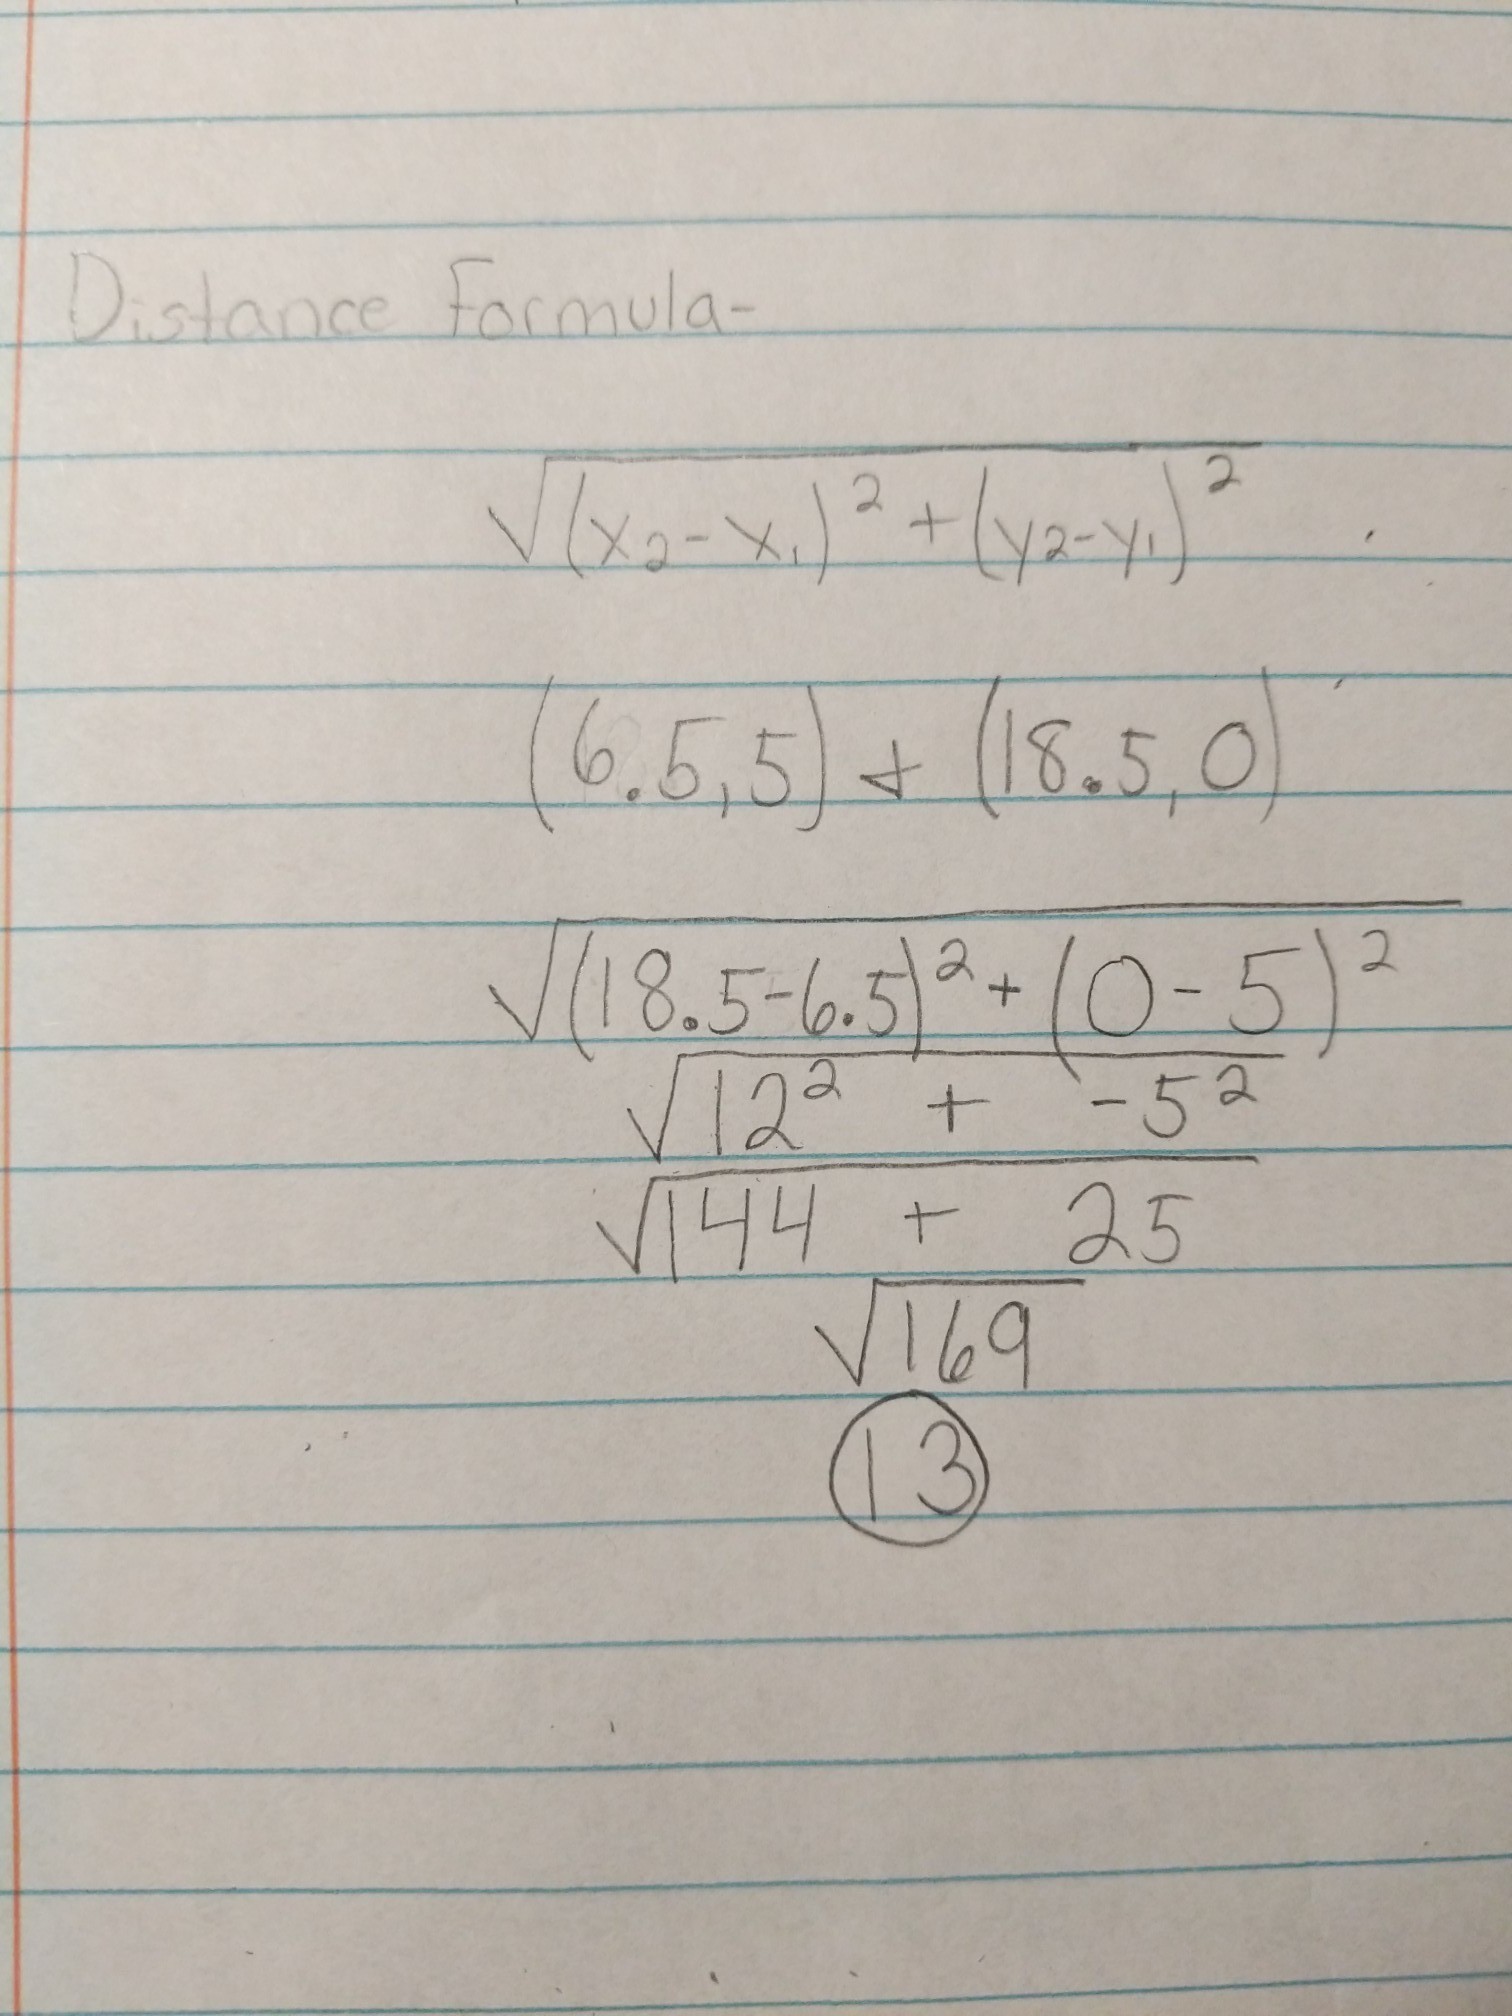 Distance Formula-
√(x₂-x₁)² + (y₂-y₁)²
(6.5,5) + (18.5,0)
√(18.5-6.5)² + (0-5)²
√12² + -5²
√144 + 25
√169
13